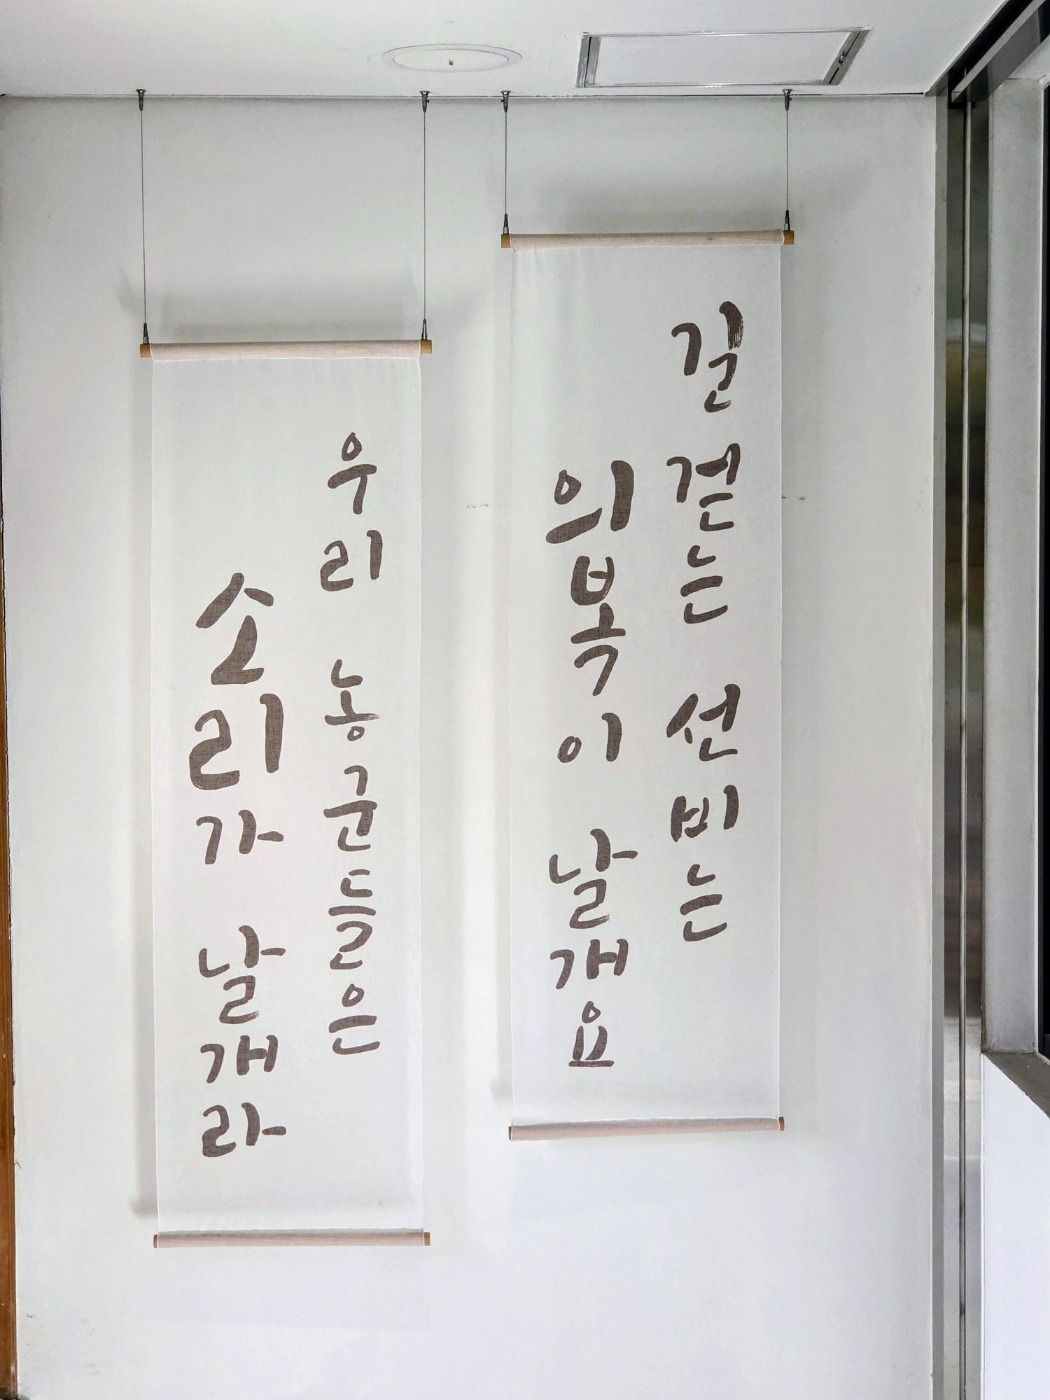 길 걷는 선비는
의복이 날개요
우리 농군들은
소리가 날개라